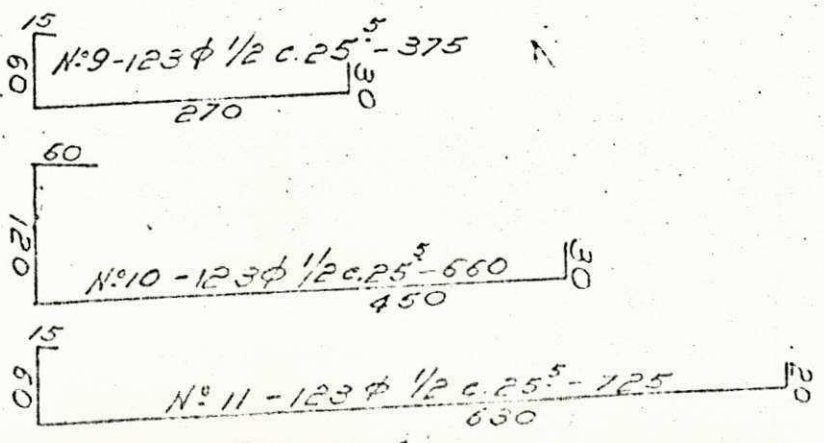 15
60
Nº9-123 ϕ 1/2 c.25⁵-375
30
270
60
120
Nº10-123ϕ 1/2 c.25⁵-660
30
450
15
60
Nº11-123 ϕ 1/2 c.25⁵-725
20
630